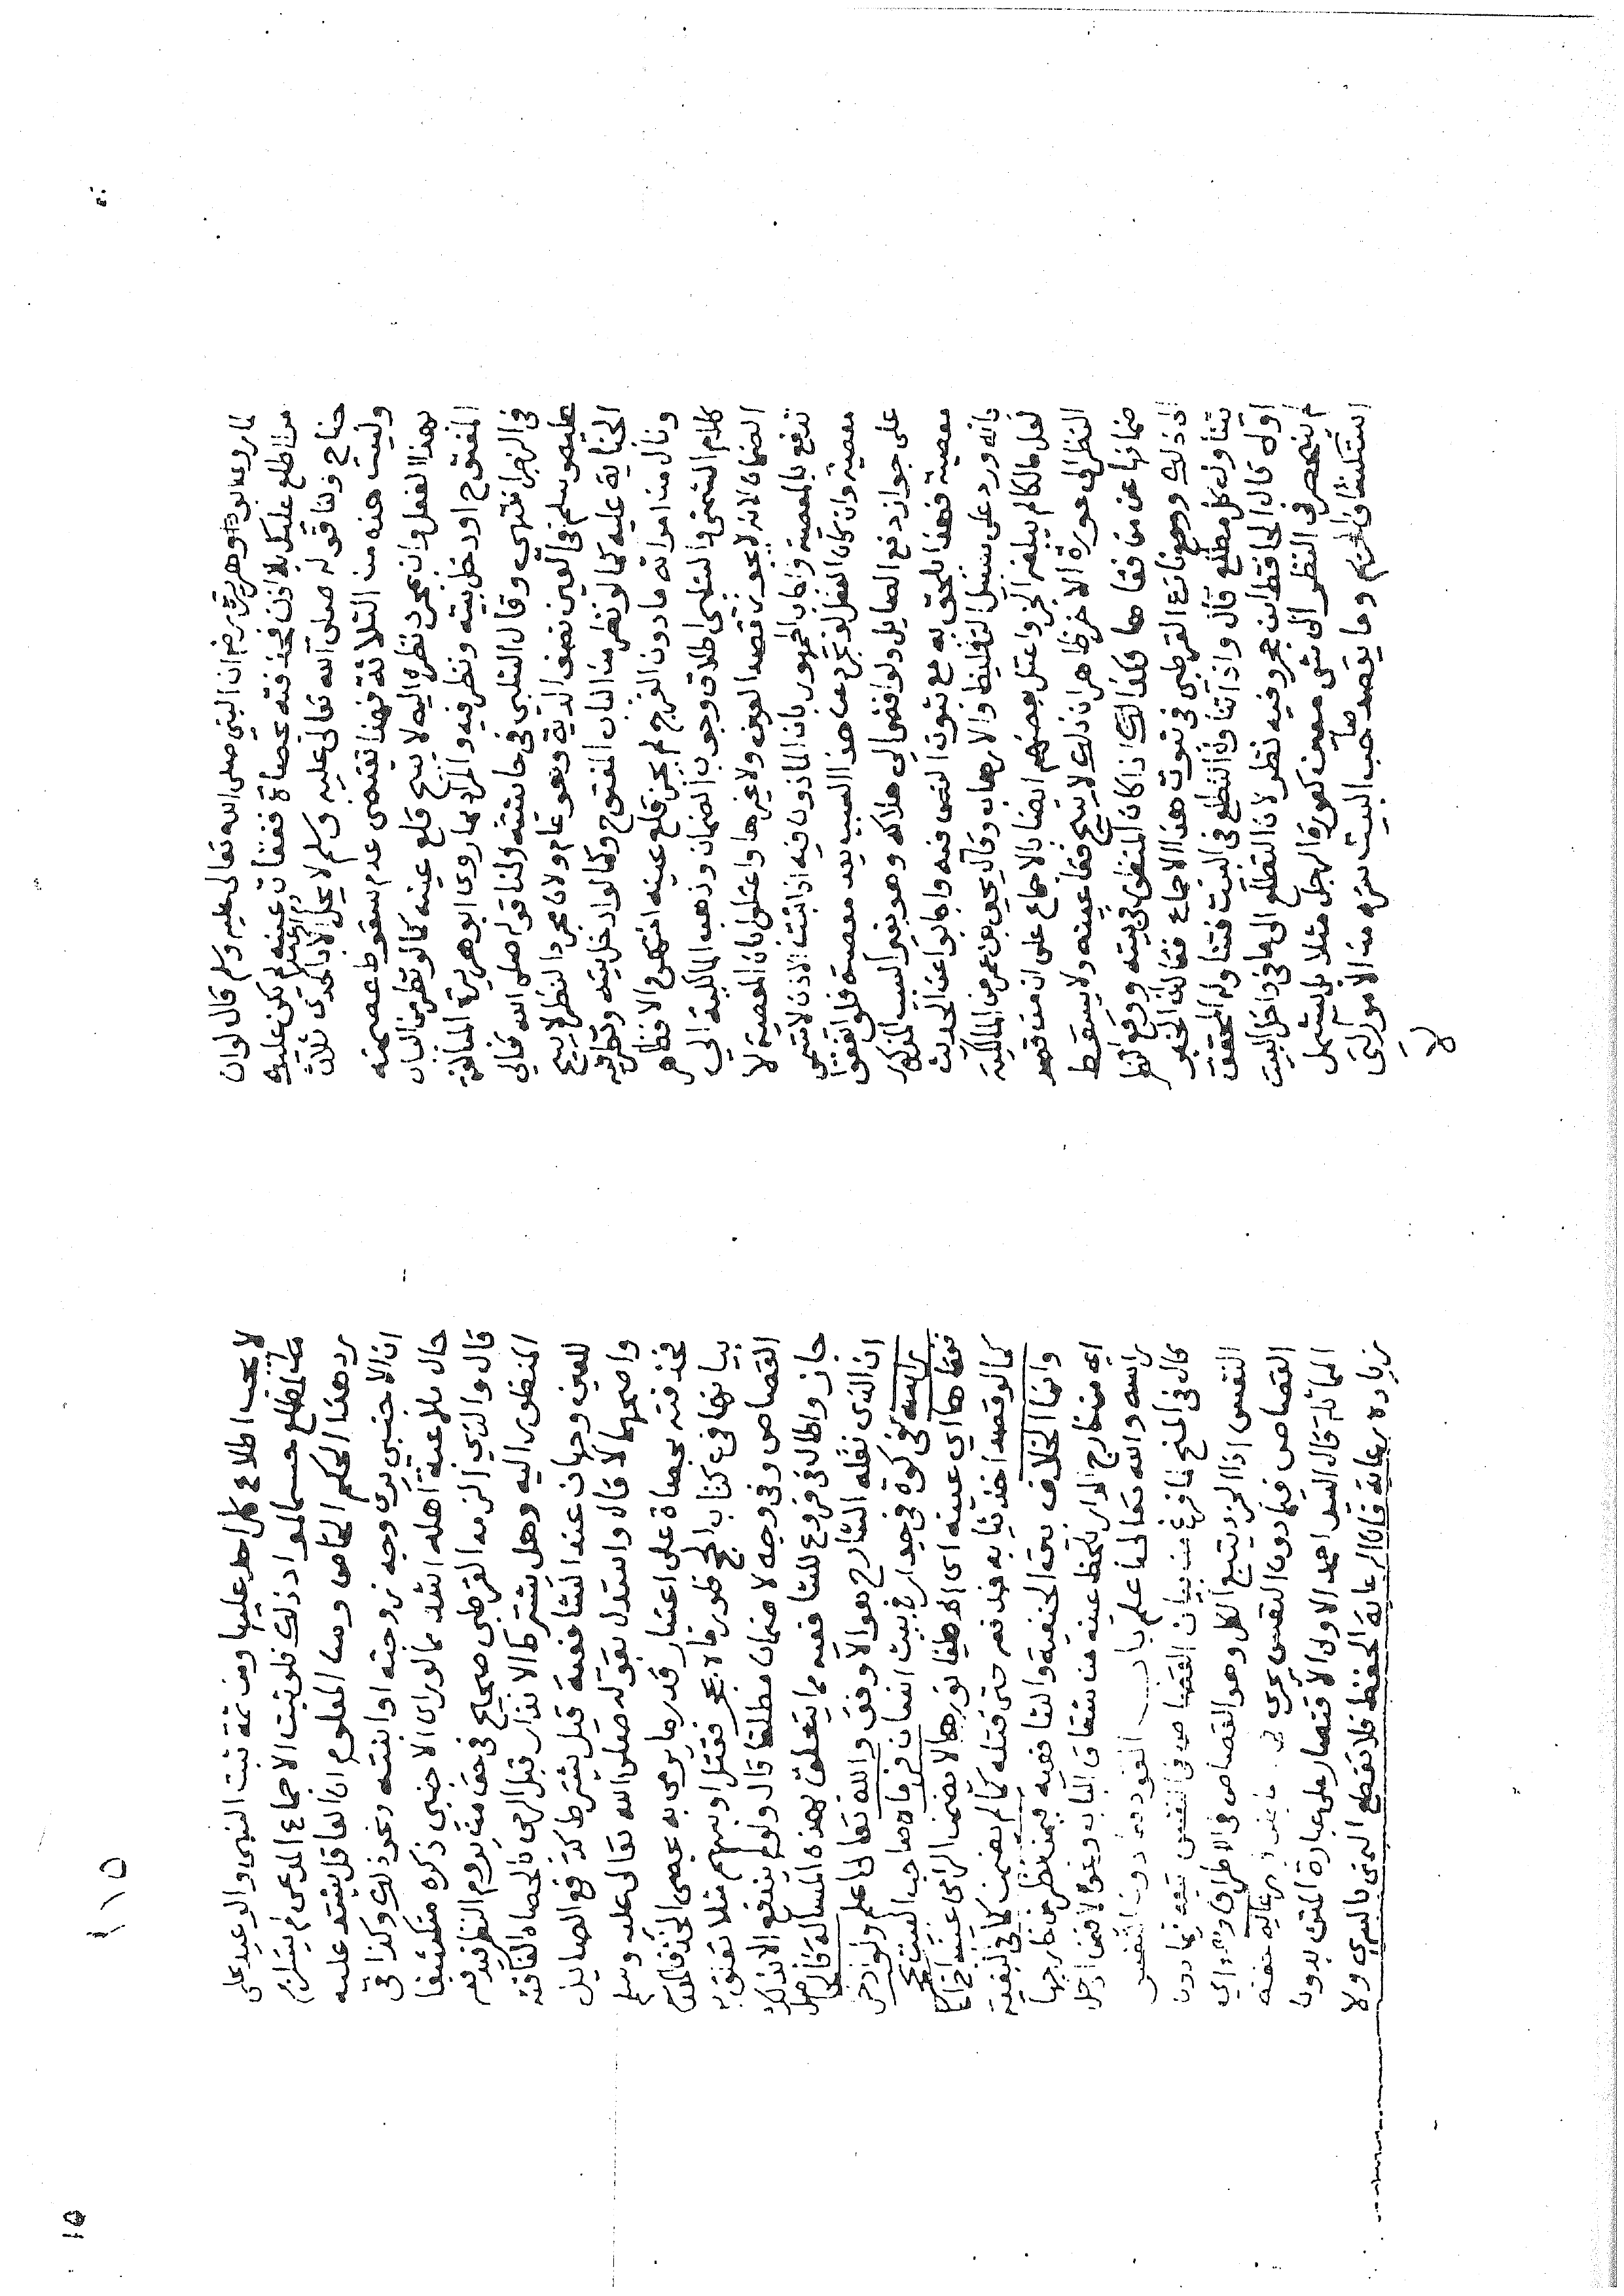 لما روى ابو هريرة رضى ان النبي صلى الله تعالى عليه وسلم قال لو ان
امرا اطلع عليك بلا اذن فخذفته بحصاة ففقأت عينه لم يكن عليك
جناح ولنا قوله صلى الله تعالى عليه وسلم لا يحل دم امرئ مسلم الا باحدى ثلاث
وليست هذه من الثلاثة فهذا يقتضى عدم سقوط عصمته
بهذا الفعل ولان مجرد نظره اليه لا يبيح قلع عينه كما لو نظر من الباب
المفتوح او دخل بيته ونظر فيه والمراد بما روى ابو هريرة المبالغة
فى الزجر انتهى وقال الشلبى فى حاشيته ولنا قوله صلى الله تعالى
عليه وسلم فى العين نصف الدية وهو عام ولان مجرد النظر لا يبيح
الجناية عليه كما لو نظر من الباب المفتوح وكما لو دخل بيته ونظر فيه
ونال من امراته ما دون الفرج لم يجز قلع عينه انتهى والا فظاهر
كلام الشمنى والشلبى اطلاق وجوب الضمان وذهب المالكية الى
الضمان لانه لا يجوز قصد العين ولا غيرها واعتلوا بان المعصية لا
تدفع بالمعصية واجاب الجمهور بان الماذون فيه اذا ثبت الاذن لا يسمى
معصية وان كان الفعل لو تجرد عن هذا السبب يعد معصية فلو اتفقا
على جواز دفع الصايل ولو افضى الى هلاكه وهو بغير السبب المذكور
معصية فهذا ملحق به مع ثبوت النص فيه واجابوا عن الحديث
بانه ورد على سبيل التغليظ والارهاب وقال يحيى بن عمر من المالكية
لعل مالكا لم يبلغه الخبر واعتل بعضهم ايضا بالاجماع على ان من قصد
النظر الى عورة الاخر ظاهر ان ذلك لا يبيح فقأ عينه ولا يسقط
ضمانها عن من فقاها فكذلك اذا كان المنظور فى بيته ووقع النظر
الى ذلك نازع القرطبى فى ثبوت هذا الاجماع فقال ان الخبر
يتناول كل مطلع قال واذا تناول المتطلع فى البيت فتناوله المحقق
اولى قال الحافظ ابن حجر وفيه نظر لان التطلع الى ما فى داخل البيت
لم ينحصر فى النظر الى شى معين كعورة الرجل مثلا بل يشتمل
استكشاف الحريم وما يقصد صاحب البيت ستره من الامور التى
لا
١١٥
لا يجب اطلاع كل احد عليها ومن ثمة ثبت النهى والوعيد على
المطلع حسما لمواد ذلك فلو ثبت الاجماع المدعى لم يستلزم
رد هذا الحكم الخاص ومن المعلوم ان العاقل يشتد عليه
ان الاجنبى يرى وجه زوجته او ابنته ونحو ذلك وكذا فى
حال ملاعبة اهله اشد مما لو راى الاجنبى ذكره منكشفا
قال والذى الزمه القرطبى صحيح فى حق من يروم النظر فيدفعه
المنظور اليه وهل يشترط الانذار قبل الرمى بالحصاة الفاقئة
للعين وجهان عند الشافعية قيل يشترط كدفع الصايل
واصحهما لا قال واستدل بقوله صلى الله تعالى عليه وسلم
فخذفته بحصاة على اعتبار قدر ما يرمى به بحصى الخذف
بيانها فى كتاب الحج فلو رماه بحجر فقتل او بسهم مثلا تعلق به
القصاص وفى وجه لا ضمان مطلقا قال ولو لم يندفع الا بذلك
جاز واطال فى فروع للشافعية مما يتعلق بهذه المسألة
ان الذى نقله الشارح هو الاوفق والله تعالى اعلم ولو ادخل
راسه فى كوة فى جدار بيت انسان فرماه صاحب البيت بحجر
ففقاها اى عينه اى اطفا نورها لا يضمن الرامى عينه اجماعا
كما لو قصد اخذ ثيابه فدفعه حتى قتله كما لم يضمن كما فى القنية
وانما الخلاف بين الحنفية والشافعية فيمن نظر من خارجها
اى من خارج الدار بلحظ عينه من شقاق الباب ونحوه لا فيمن ادخل
راسه والله تعالى اعلم باب القود فيما دون النفس
قال فى المنح لما فرغ من بيان القصاص فى النفس تبعه فيما دون
النفس اذ الجزء يتبع الكل وهو القصاص فى الاطراف
القصاص فيما دون النفس يجرى
المماثلة قال السيد احمد الاولى الاقتصار على عبارة المتن بدون
زيادة رعاية فان الرعاية الحفظ فلا تقطع اليمنى باليسرى ولا